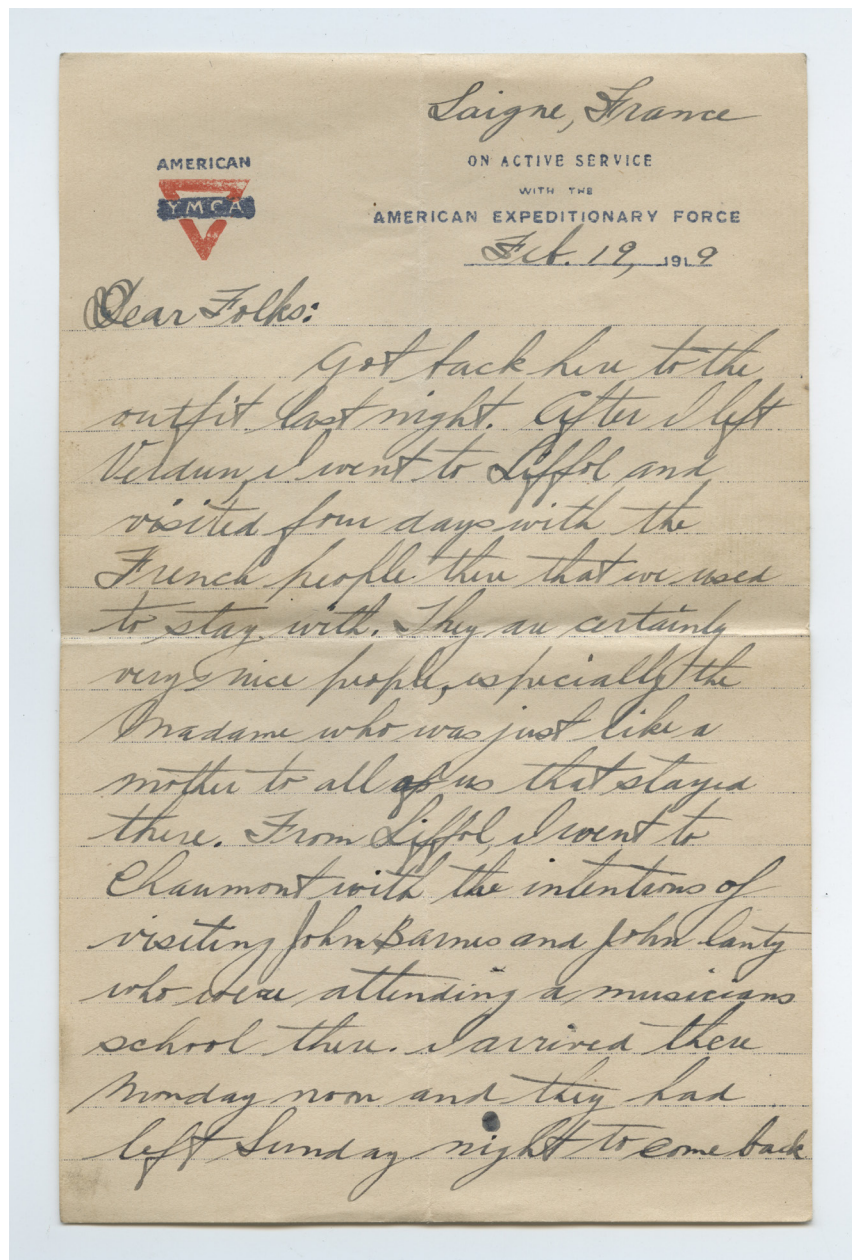 Laigne, France
AMERICAN
YMCA
ON ACTIVE SERVICE
WITH THE
AMERICAN EXPEDITIONARY FORCE
Feb. 19, 1919
Dear Folks:
Got back here to the
outfit last night. After I left
Verdun, I went to Liffol and
visited four days with the
French people there that we used
to stay with. They are certainly
very nice people, especially the
Madame who was just like a
mother to all of us that stayed
there. From Liffol, I went to
Chaumont with the intentions of
visiting John Barnes and John Canty
who were attending a musicians
school there. I arrived there
Monday noon and they had
left Sunday night to come back